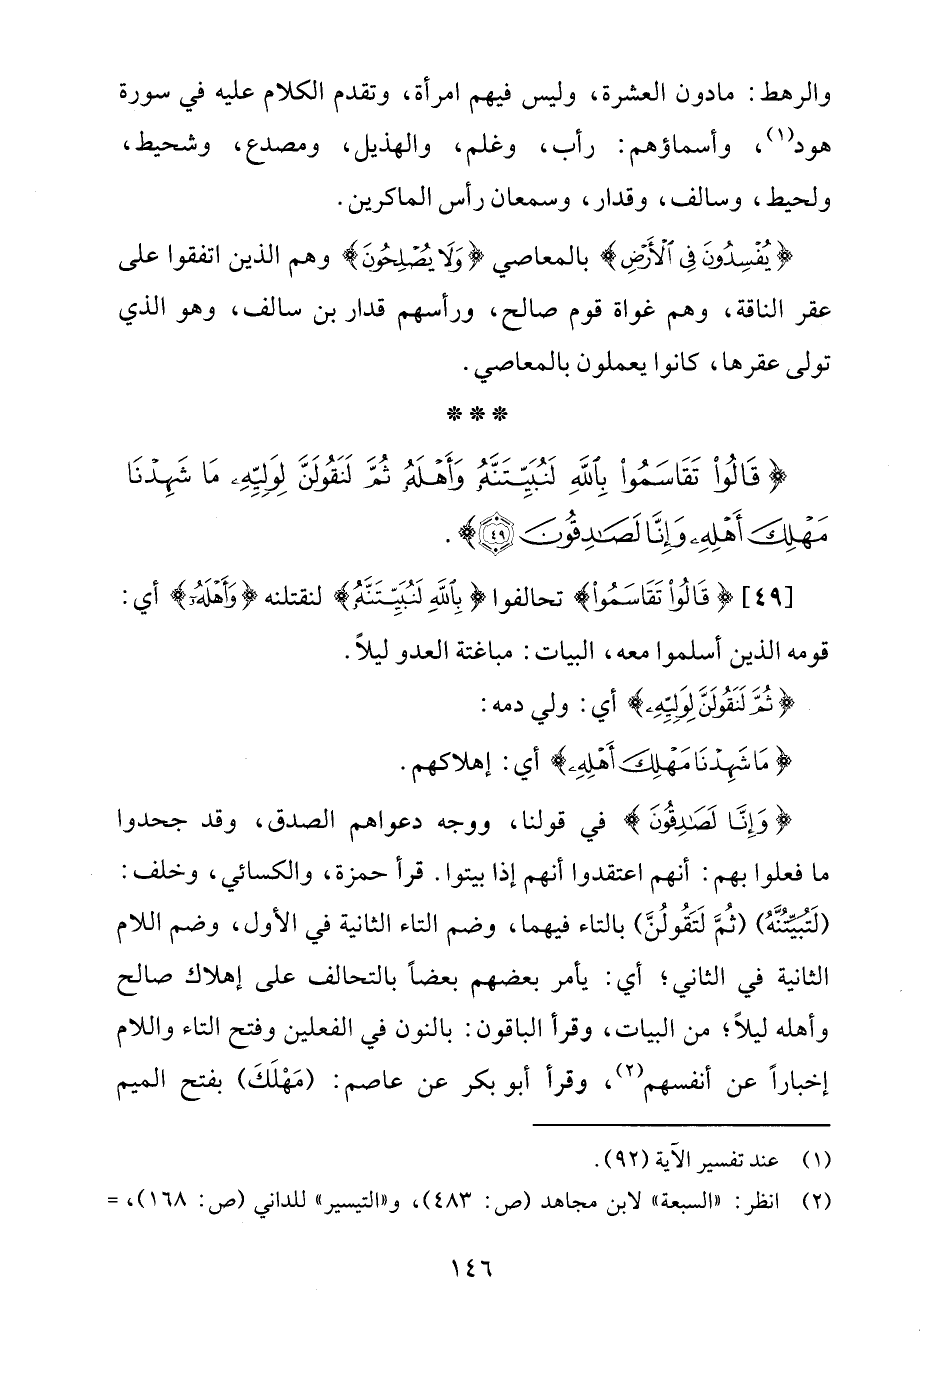 والرهط: مادون العشرة، وليس فيهم امرأة، وتقدم الكلام عليه في سورة
هود(١)، وأسماؤهم: رأب، وغلم، والهذيل، ومصدع، وشحيط،
ولحيط، وسالف، وقدار، وسمعان رأس الماكرين.
﴿يُفْسِدُونَ فِي ٱلْأَرْضِ﴾ بالمعاصي ﴿وَلَا يُصْلِحُونَ﴾ وهم الذين اتفقوا على
عقر الناقة، وهم غواة قوم صالح، ورأسهم قدار بن سالف، وهو الذي
تولى عقرها، كانوا يعملون بالمعاصي.
* * *
﴿قَالُواْ تَقَاسَمُواْ بِٱللَّهِ لَنُبَيِّتَنَّهُۥ وَأَهْلَهُۥ ثُمَّ لَنَقُولَنَّ لِوَلِيِّهِۦ مَا شَهِدْنَا
مَهْلِكَ أَهْلِهِۦ وَإِنَّا لَصَٰدِقُونَ ﴿٤٩﴾﴾.
[٤٩] ﴿قَالُواْ تَقَاسَمُواْ﴾ تحالفوا ﴿بِٱللَّهِ لَنُبَيِّتَنَّهُۥ﴾ لنقتلنه ﴿وَأَهْلَهُۥ﴾ أي:
قومه الذين أسلموا معه، البيات: مباغتة العدو ليلاً.
﴿ثُمَّ لَنَقُولَنَّ لِوَلِيِّهِۦ﴾ أي: ولي دمه:
﴿مَا شَهِدْنَا مَهْلِكَ أَهْلِهِۦ﴾ أي: إهلاكهم.
﴿وَإِنَّا لَصَٰدِقُونَ﴾ في قولنا، ووجه دعواهم الصدق، وقد جحدوا
ما فعلوا بهم: أنهم اعتقدوا أنهم إذا بيتوا. قرأ حمزة، والكسائي، وخلف:
(لَتُبَيِّتُنَّهُ) (ثُمَّ لَتَقُولُنَّ) بالتاء فيهما، وضم التاء الثانية في الأول، وضم اللام
الثانية في الثاني؛ أي: يأمر بعضهم بعضاً بالتحالف على إهلاك صالح
وأهله ليلاً؛ من البيات، وقرأ الباقون: بالنون في الفعلين وفتح التاء واللام
إخباراً عن أنفسهم(٢)، وقرأ أبو بكر عن عاصم: (مَهْلَكَ) بفتح الميم
(١) عند تفسير الآية (٩٢).
(٢) انظر: «السبعة» لابن مجاهد (ص: ٤٨٣)، و«التيسير» للداني (ص: ١٦٨)، =
١٤٦